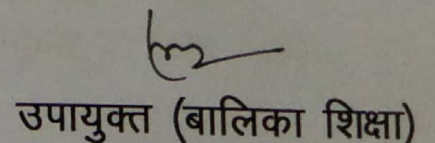 उपायुक्त (बालिका शिक्षा)